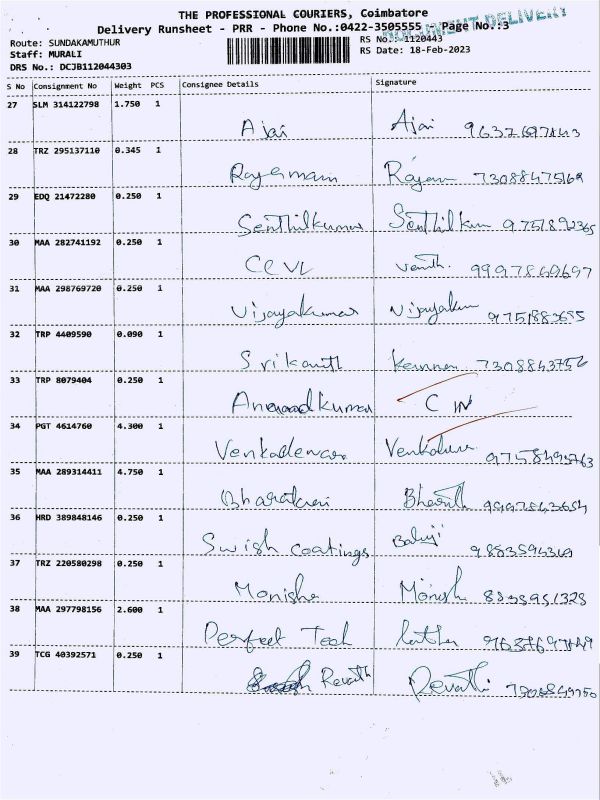 THE PROFESSIONAL COURIERS, Coimbatore
DOCUMENT DELIVERY
Delivery Runsheet - PRR - Phone No.:0422-3505555 - Page No.:3
Route: SUNDAKAMUTHUR RS No.: 1120443
Staff: MURALI RS Date: 18-Feb-2023
DRS No.: DCJB112044303
S No Consignment No Weight PCS Consignee Details Signature
27 SLM 314122798 1.750 1
Ajai Ajai
28 TRZ 295137110 0.345 1
29 EDQ 21472280 0.250 1
Senthilkumar Senthilkum
30 MAA 282741192 0.250 1
31 MAA 298769720 0.250 1
Vijayakumar Vijayakum
32 TRP 4409590 0.090 1
Srikanth 7308843756
33 TRP 8079404 0.250 1
Anandkumar
34 PGT 4614760 4.300 1
35 MAA 289314411 4.750 1
Bharath
36 HRD 389848146 0.250 1
Swish Coatings Balaji
37 TRZ 220580298 0.250 1
Monisha Monish
38 MAA 297798156 2.600 1
Perfect Tech
39 TCG 40392571 0.250 1
Revath Revathi